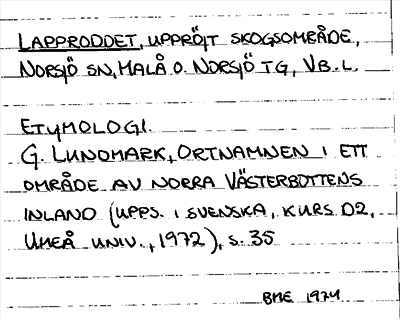 LAPPRODDET, UPPRÖJT SKOGSOMRÅDE,
NORSJÖ SN, MALÅ O. NORSJÖ TG, VB. L.
ETYMOLOGI.
G. LUNDMARK, ORTNAMNEN I ETT
OMRÅDE AV NORRA VÄSTERBOTTENS
INLAND (UPPS. I SVENSKA, KURS D2,
UMEÅ UNIV., 1972), S. 35
BME 1974